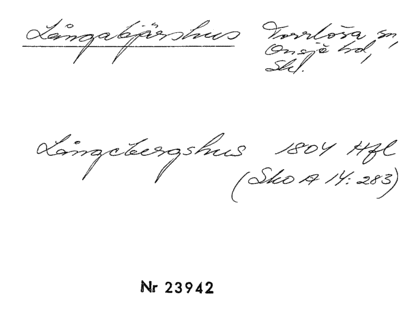 Långabjärshus Torrlösa sn,
Onsjö hd,
Skl.
Långebergshus 1804 Hfl
(Sko A 14: 283)
Nr 23942